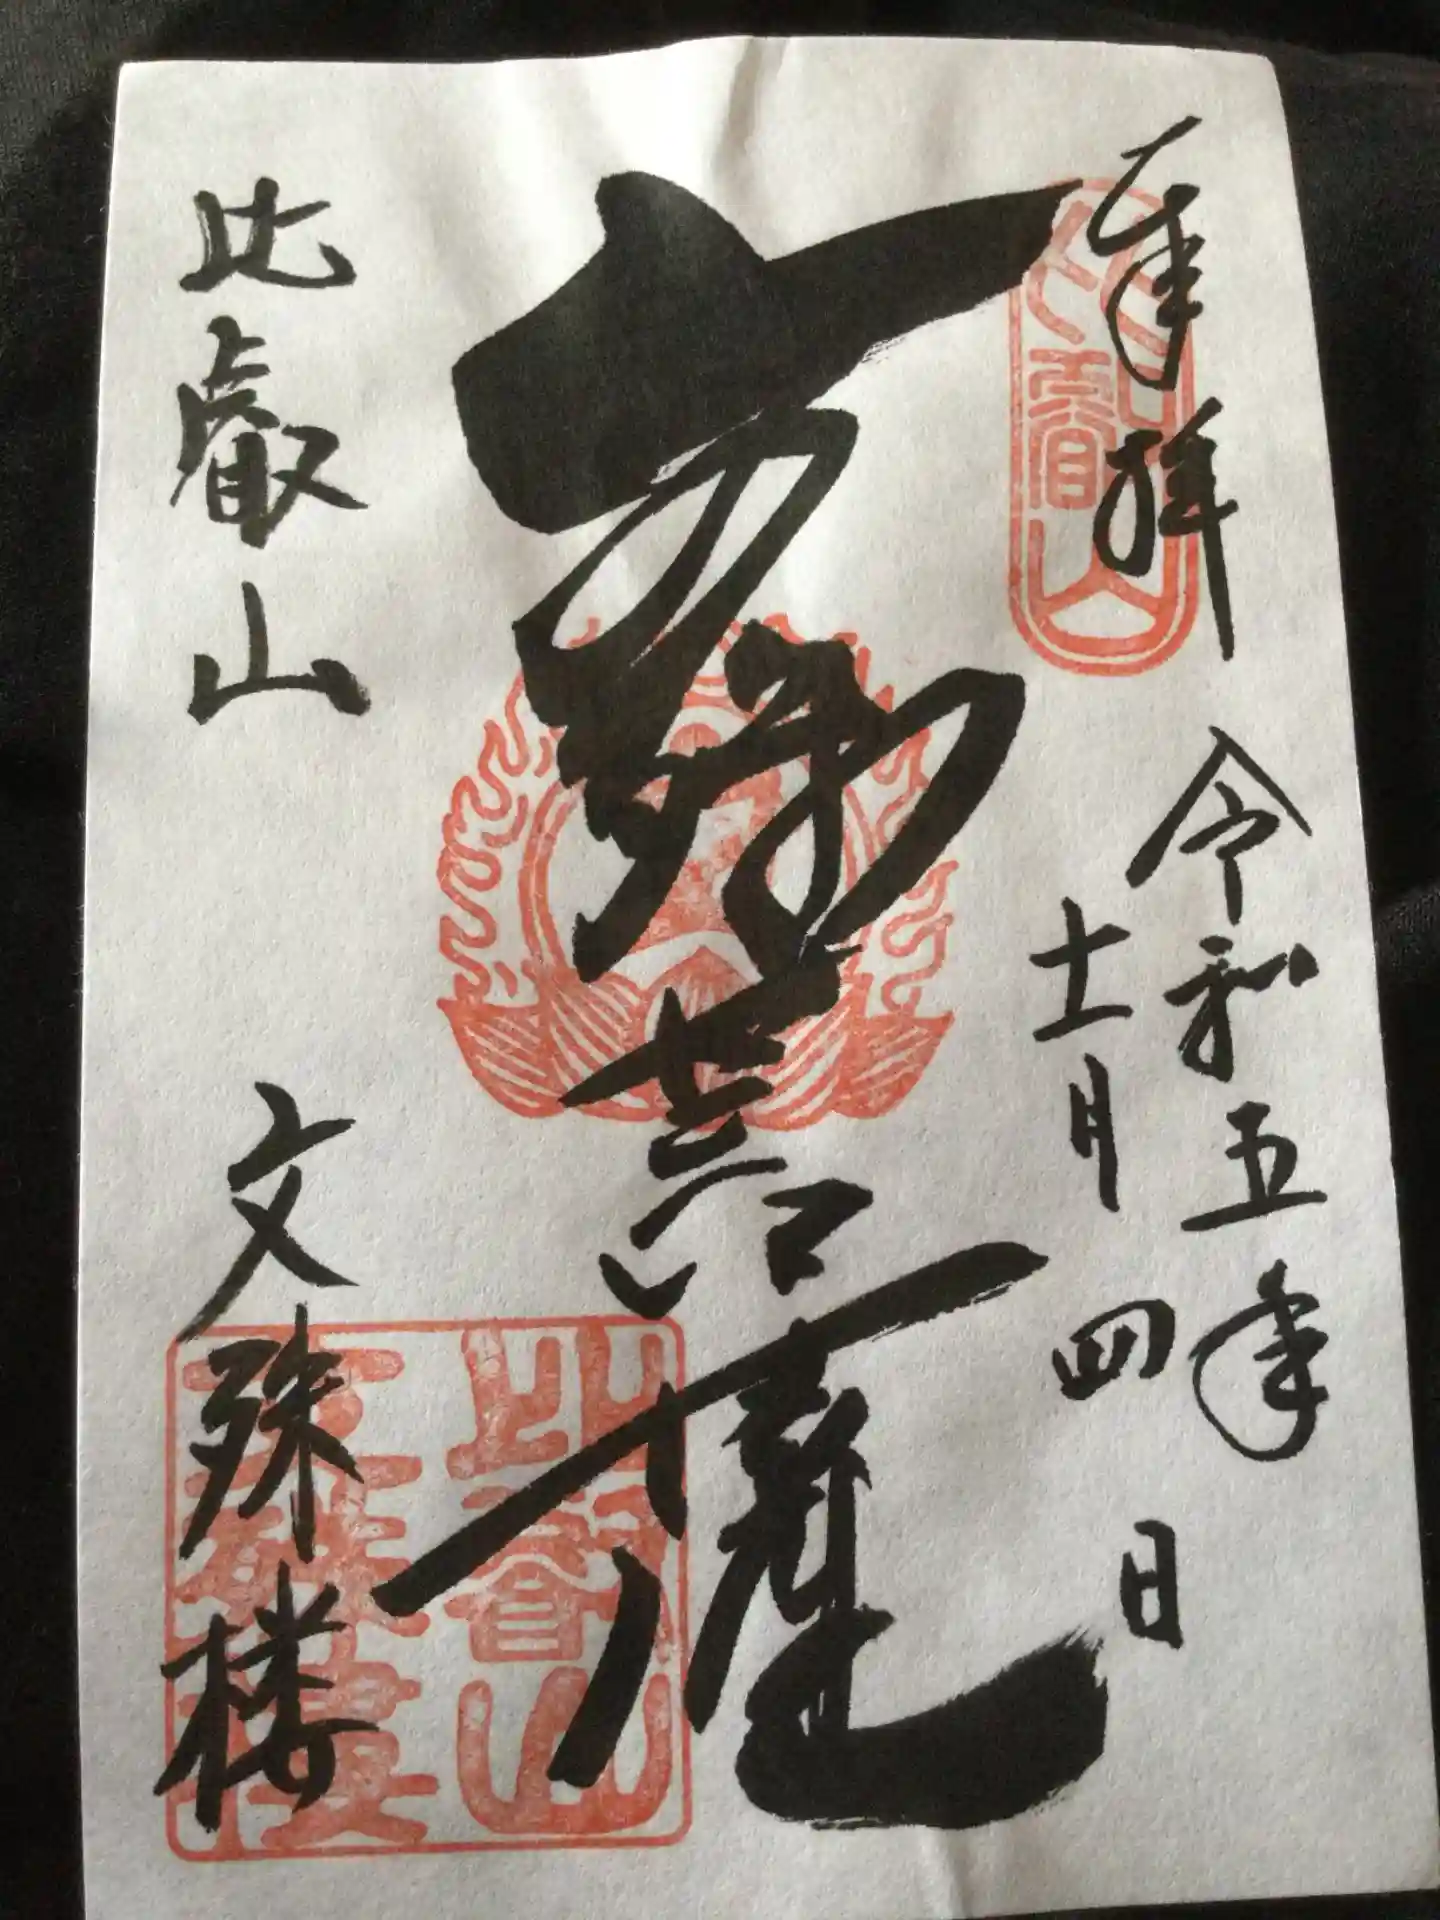 奉拝
令和五年
十一月四日
文殊菩薩
比叡山
文殊楼
比叡山
比叡山
文殊楼